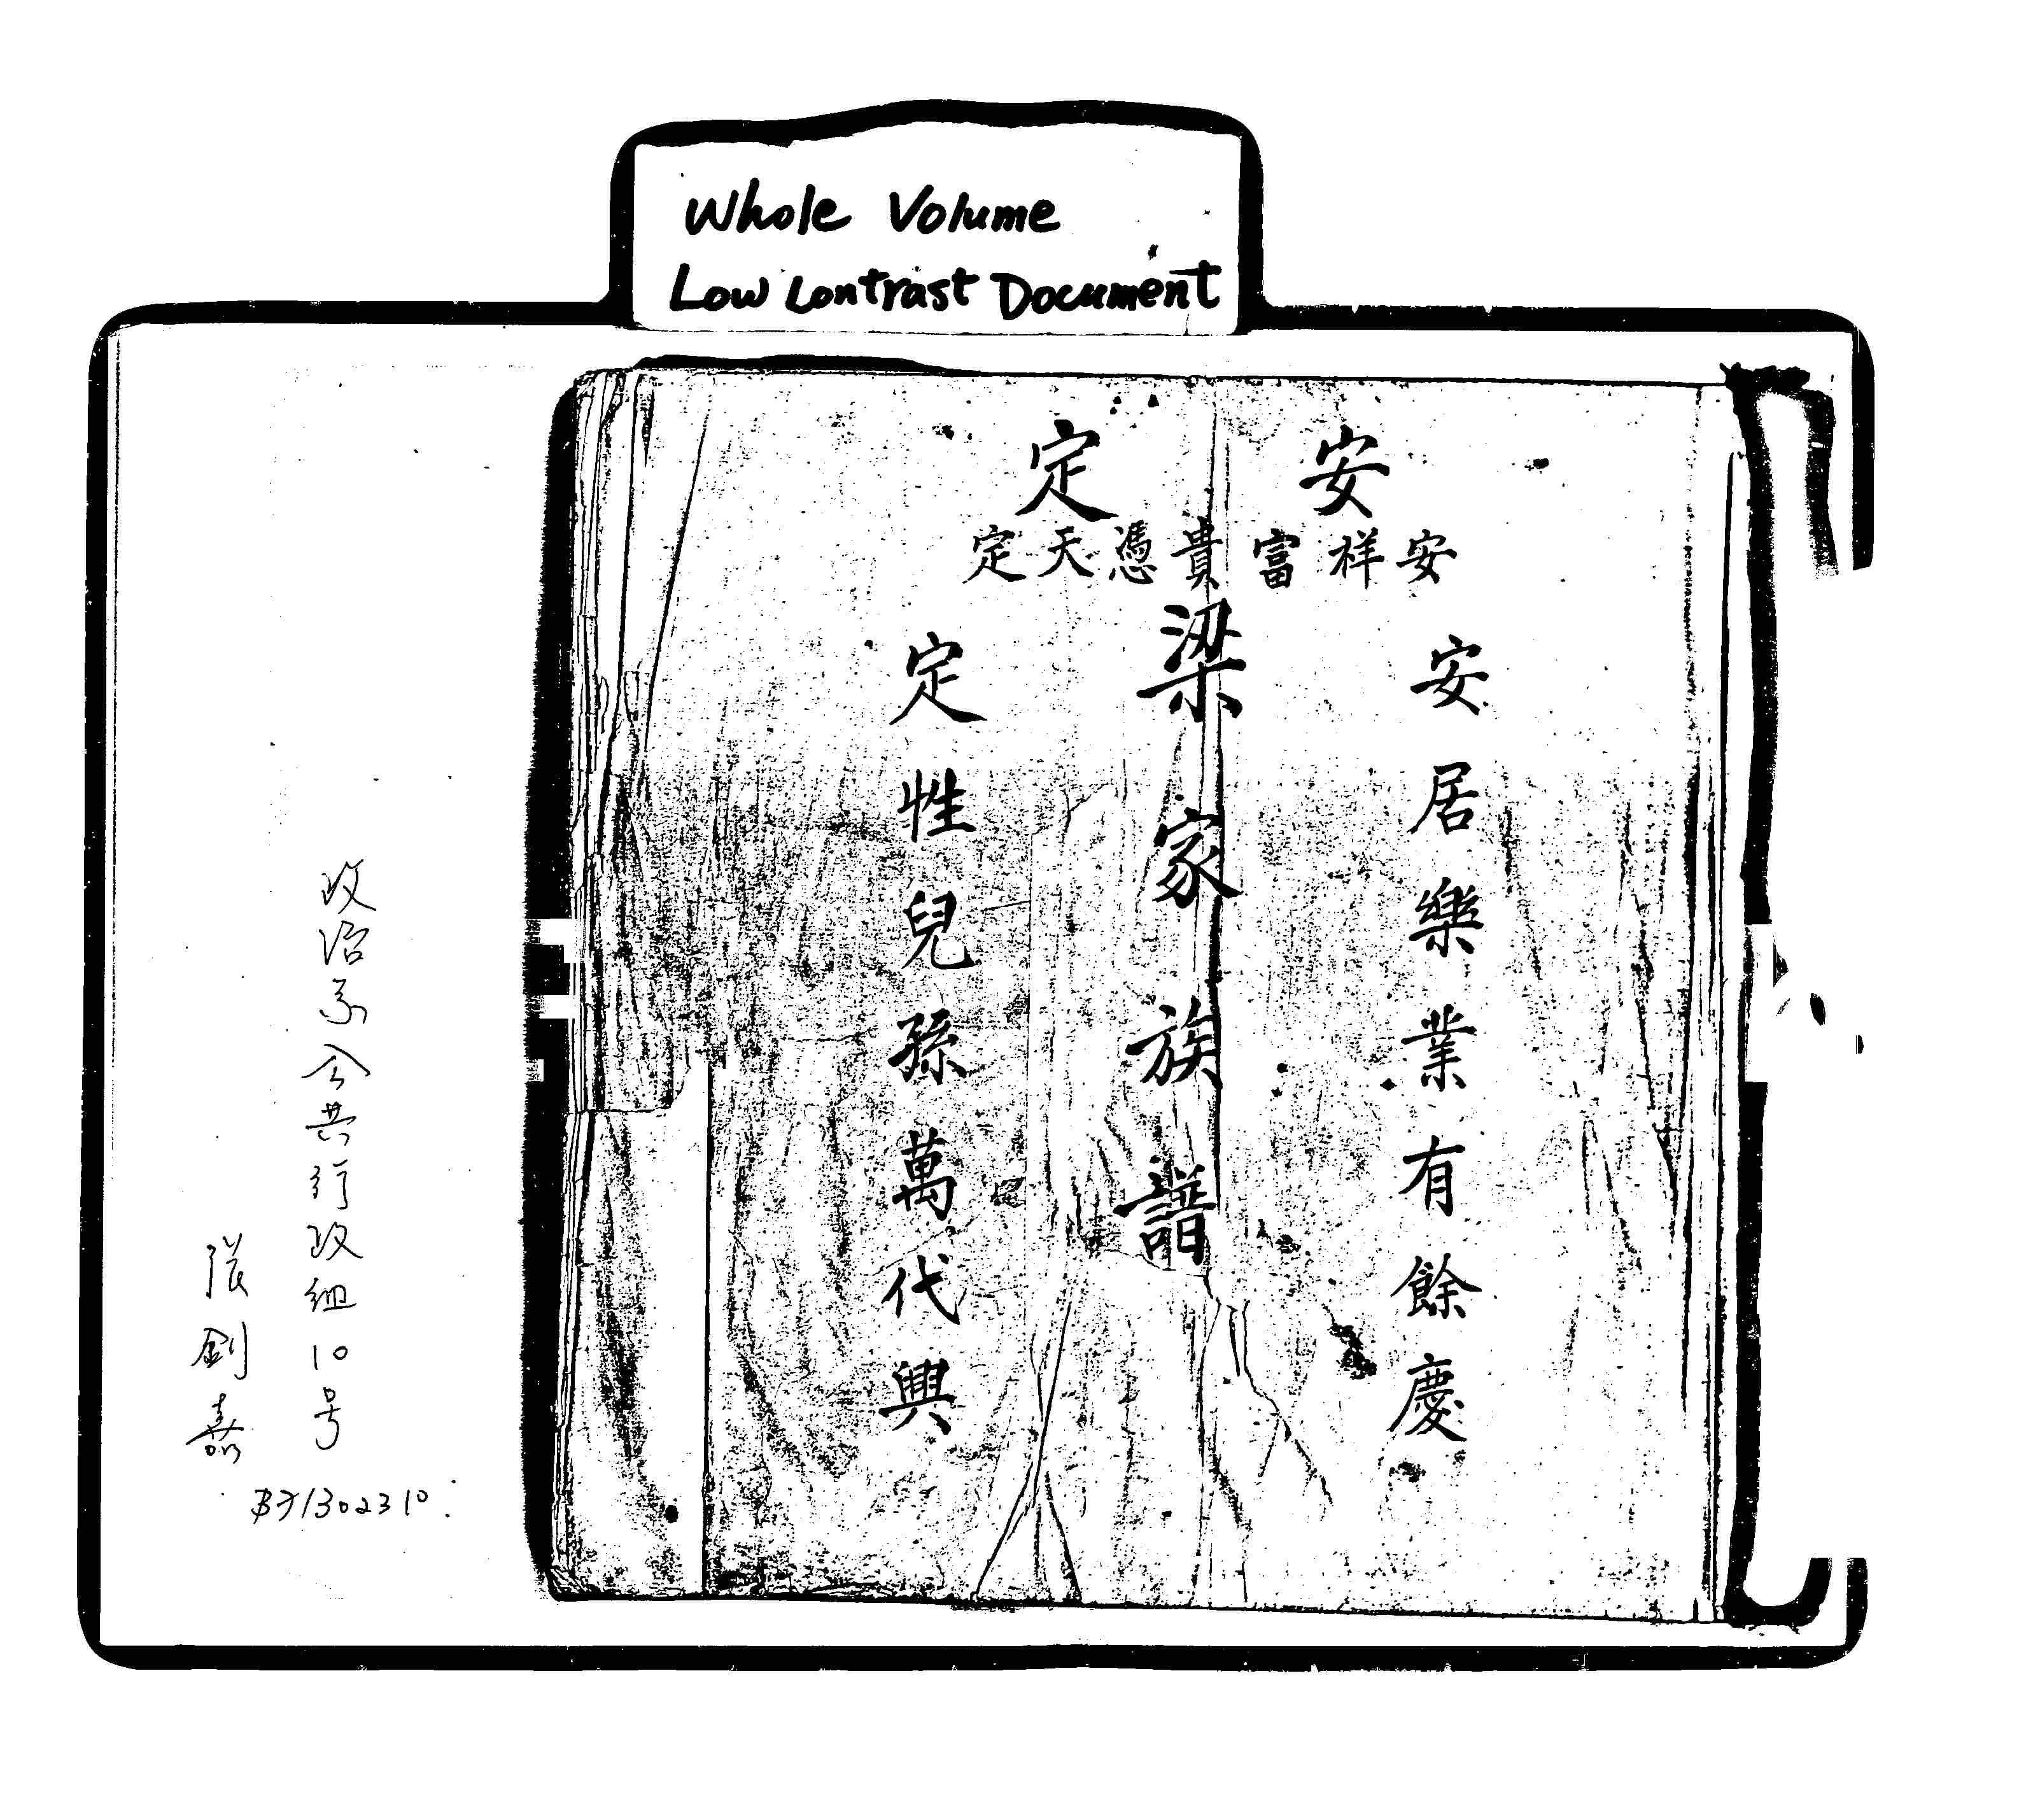 Whole Volume
Low Contrast Document
安定
安祥富貴憑天定
安居樂業有餘慶
梁家族譜
定性兒孫萬代興
政治系公共行政組10号
張釗嘉
B71302310